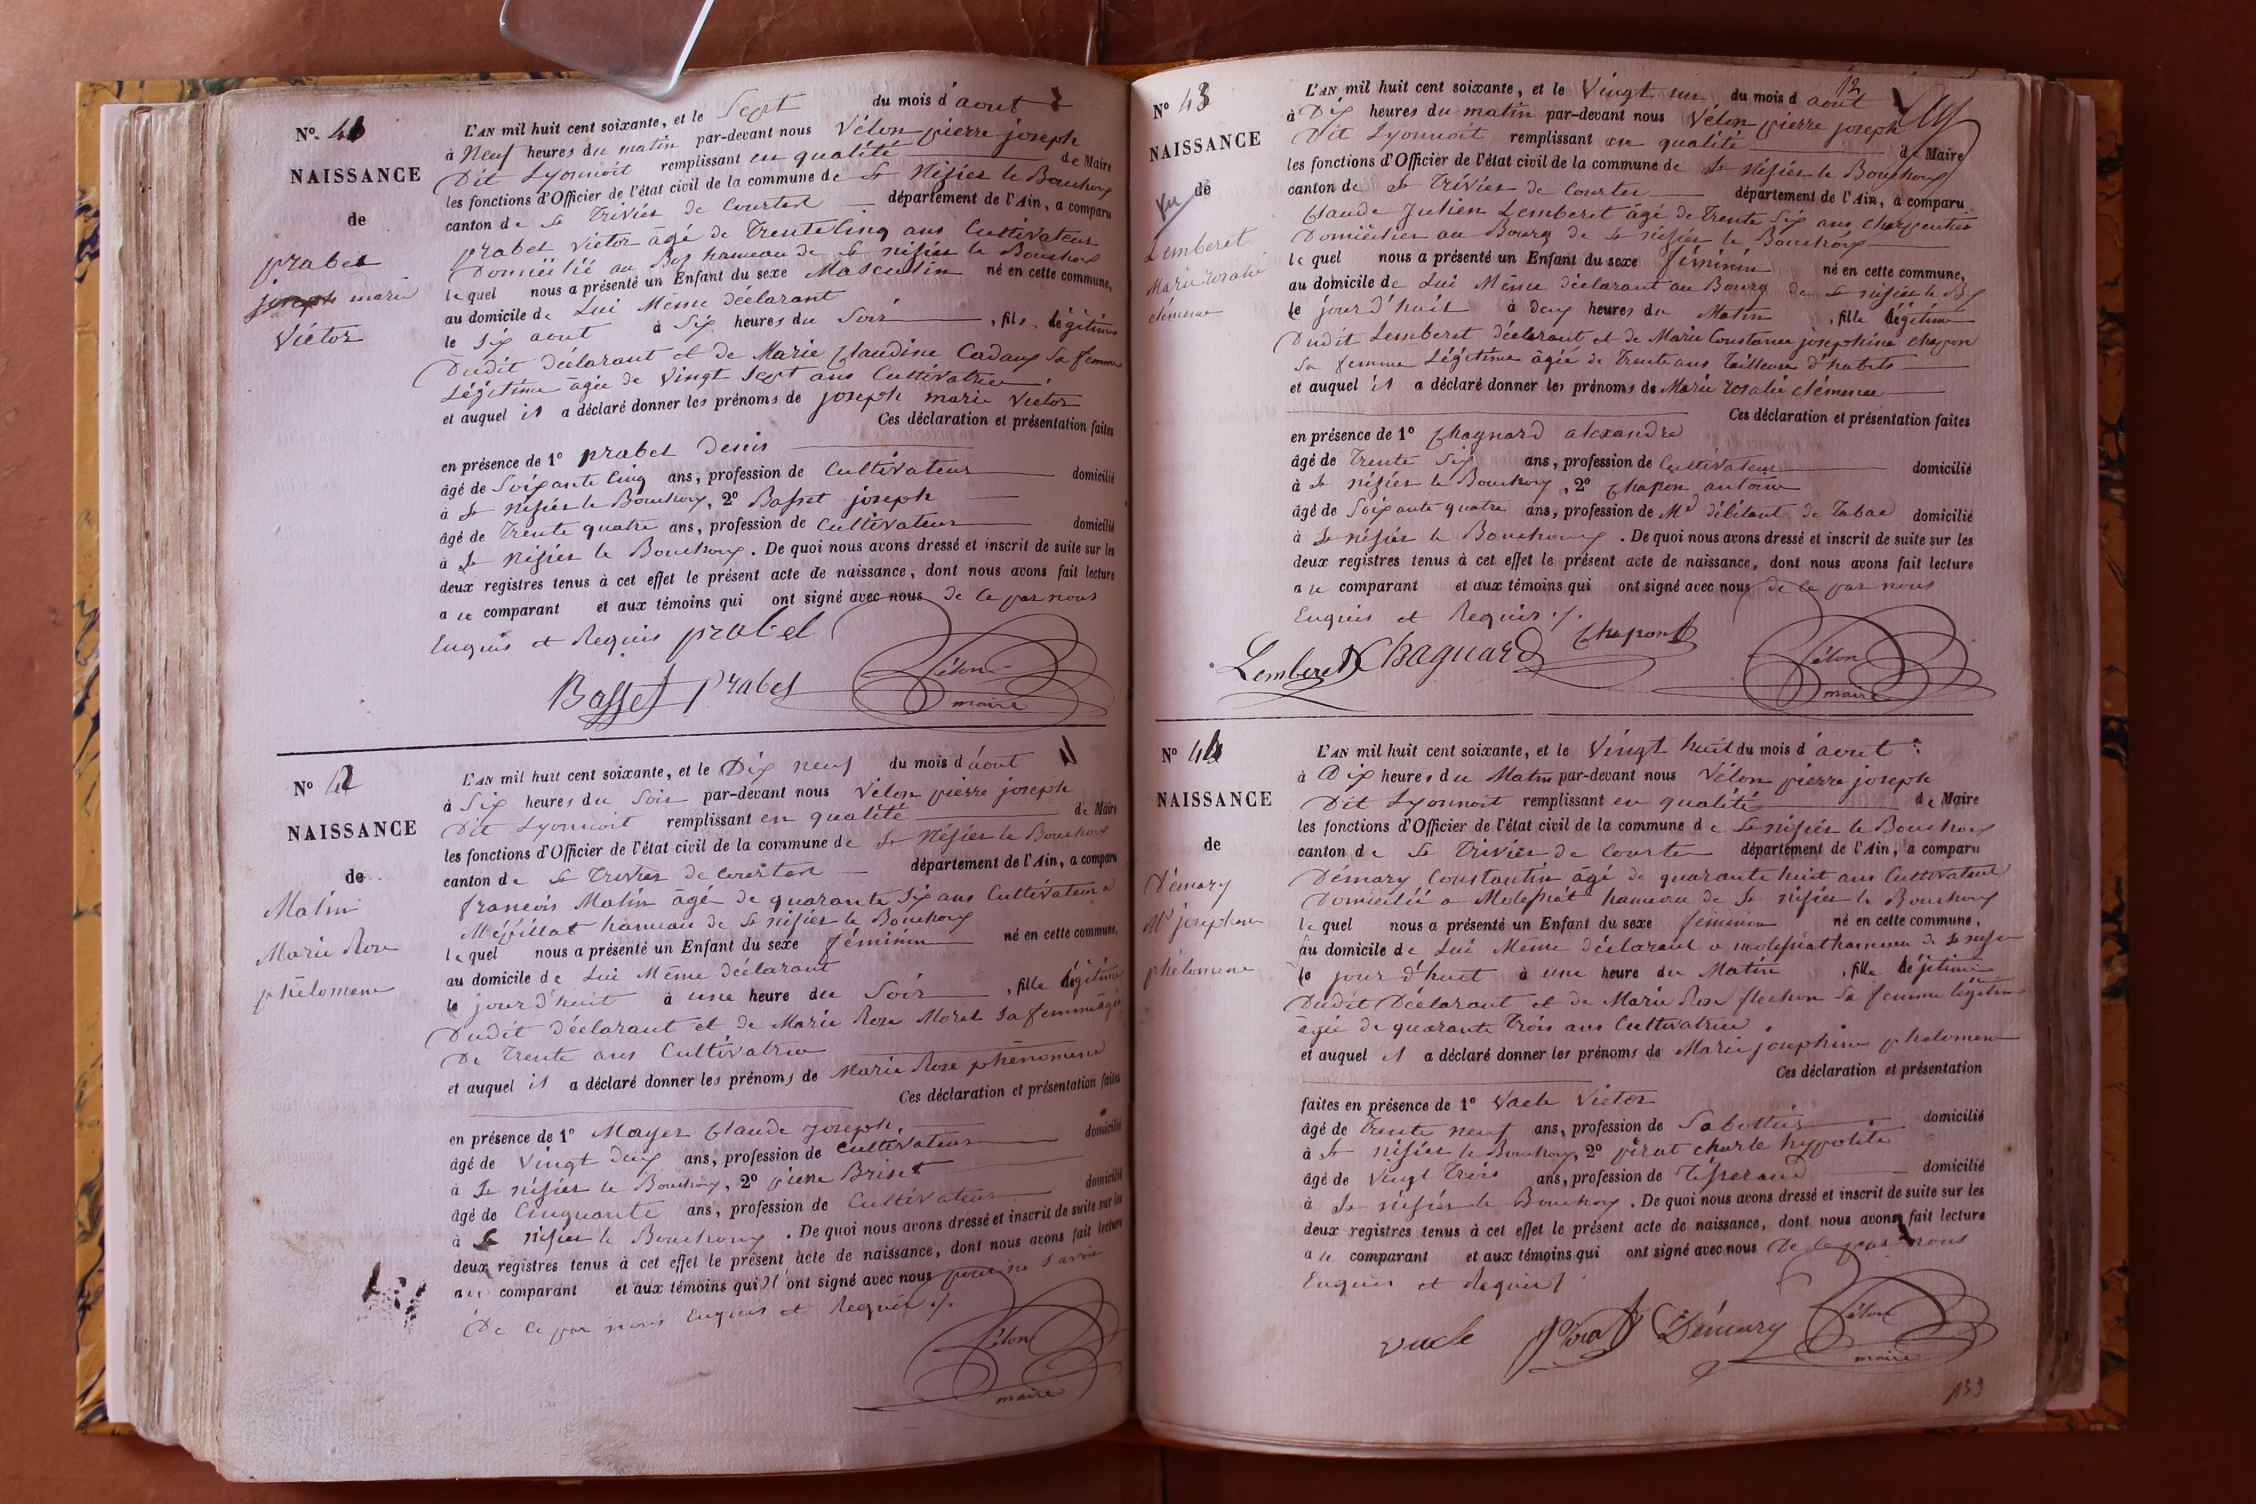 No. 41
NAISSANCE
de
prabel
joseph marie
Victor
L'AN mil huit cent soixante, et le Sept du mois d'aout
à Neuf heures du matin par-devant nous Vélon pierre joseph
Dit Lyonnoit remplissant en qualité de Maire
les fonctions d'Officier de l'état civil de la commune de St Nisier le Bouchoux
canton de St Trivier de Courtes département de l'Ain, a comparu
prabel Victor âgé de Trente Cinq ans Cultivateur
Domicilié au hameau de St nisier le Bouchoux
lequel nous a présenté un Enfant du sexe Masculin né en cette commune,
au domicile de Lui Même déclarant
le Six aout à Six heures du Soir, fils Légitime
Dudit déclarant et de Marie Claudine Cadaux Sa femme
Légitime âgée de Vingt Sept ans Cultivatrice
et auquel il a déclaré donner les prénoms de joseph marie Victor
Ces déclaration et présentation faites
en présence de 1º prabel Denis
âgé de Soixante Cinq ans, profession de Cultivateur domicilié
à St Nisier le Bouchoux, 2º Basset joseph
âgé de Trente quatre ans, profession de Cultivateur domicilié
à St Nisier le Bouchoux. De quoi nous avons dressé et inscrit de suite sur les
deux registres tenus à cet effet le présent acte de naissance, dont nous avons fait lecture
a ce comparant et aux témoins qui ont signé avec nous de ce par nous
Enquis et Requis prabel
Basset prabel Vélon
maire
No 42
NAISSANCE
de
Matin
Marie Rose
phélomene
L'AN mil huit cent soixante, et le Dix neuf du mois d'aout
à Six heures du Soir par-devant nous Vélon pierre joseph
Dit Lyonnoit remplissant en qualité de Maire
les fonctions d'Officier de l'état civil de la commune de St Nisier le Bouchoux
canton de St Trivier de Courtes département de l'Ain, a comparu
francois Matin âgé de quarante Six ans Cultivateur a
Méfillat hameau de St nisier le Bouchoux
lequel nous a présenté un Enfant du sexe féminin né en cette commune,
au domicile de Lui Même déclarant
le jour d'huit à une heure du Soir, fille Légitime
Dudit déclarant et de Marie Rose Morel sa femme âgée
De Trente ans Cultivatrice
et auquel il a déclaré donner les prénoms de Marie Rose phénomene
Ces déclaration et présentation faites
en présence de 1º Mayer Claude joseph
âgé de Vingt Deux ans, profession de cultivateur domicilié
à St nisier le Bouchoux, 2º piere Briset
âgé de Cinquante ans, profession de Cultivateur domicilié
à St nisier le Bouchoux. De quoi nous avons dressé et inscrit de suite sur les
deux registres tenus à cet effet le présent acte de naissance, dont nous avons fait lecture
au comparant et aux témoins qui n'ont signé avec nous pour ne Savoir
De ce par nous Enquis et Requis
Vélon
maire
12
No 43
NAISSANCE
de
Vu
Lemberet
Marie rosalie
clémence
L'AN mil huit cent soixante, et le Vingt un du mois d'aout
à Dix heures du matin par-devant nous Vélon pierre joseph
Dit Lyonnoit remplissant en qualité de Maire
les fonctions d'Officier de l'état civil de la commune de St Nisier le Bouchoux
canton de St Trivier de Courtes département de l'Ain, a comparu
Claude Julien Lemberet âgé de Trente Six ans charpentier
Domicilier au Bourg de St nisier le Bouchoux
lequel nous a présenté un Enfant du sexe féminin né en cette commune,
au domicile de Lui Même déclarant au Bourg de St nisier le Bx
le jour d'huit à deux heures du Matin, fille Légitime
Dudit Lemberet déclarant et de Marie Constance josephine chapon
Sa femme Légitime âgée de Trente ans Tailleuse d'habits
et auquel il a déclaré donner les prénoms de Marie rosalie clémence
Ces déclaration et présentation faites
en présence de 1º Chagnard alexandre
âgé de Trente Six ans, profession de Cultivateur domicilié
à St nisier le Bouchoux, 2º Chapon antoine
âgé de Soixante quatre ans, profession de Md débitant de Tabac domicilié
à St nisier le Bouchoux. De quoi nous avons dressé et inscrit de suite sur les
deux registres tenus à cet effet le présent acte de naissance, dont nous avons fait lecture
a ce comparant et aux témoins qui ont signé avec nous de ce par nous
Enquis et Requis
Lemberet Chagnard Chapon Vélon
maire
No 44
NAISSANCE
de
Démary
Me josephine
phélomene
L'AN mil huit cent soixante, et le Vingt huit du mois d'aout
à Dix heures du Matin par-devant nous Vélon pierre joseph
Dit Lyonnoit remplissant en qualité de Maire
les fonctions d'Officier de l'état civil de la commune de St nisier le Bouchoux
canton de St Trivier de Courte département de l'Ain, a comparu
Démary Constantin âgé de quarante huit ans Cultivateur
Domicilié a hameau de St nisier le Bouchoux
lequel nous a présenté un Enfant du sexe féminin né en cette commune,
au domicile de Lui Même déclarant a hameau de St nisier
le jour d'huit à une heure du Matin, fille Légitime
Dudit Déclarant et de Marie Rose flechon Sa femme légitime
âgée de quarante Trois ans Cultivatrice
et auquel il a déclaré donner les prénoms de Marie josephine phélomene
Ces déclaration et présentation
faites en présence de 1º Vacle Victor
âgé de Trente neuf ans, profession de Sabottier domicilié
à St nisier le Bouchoux, 2º pirat charle hyppolite
âgé de Vingt Trois ans, profession de Tisserand domicilié
à St nisier le Bouchoux. De quoi nous avons dressé et inscrit de suite sur les
deux registres tenus à cet effet le présent acte de naissance, dont nous avons fait lecture
a ce comparant et aux témoins qui ont signé avec nous De ce par nous
Enquis et Requis
Vacle Démary Vélon
maire